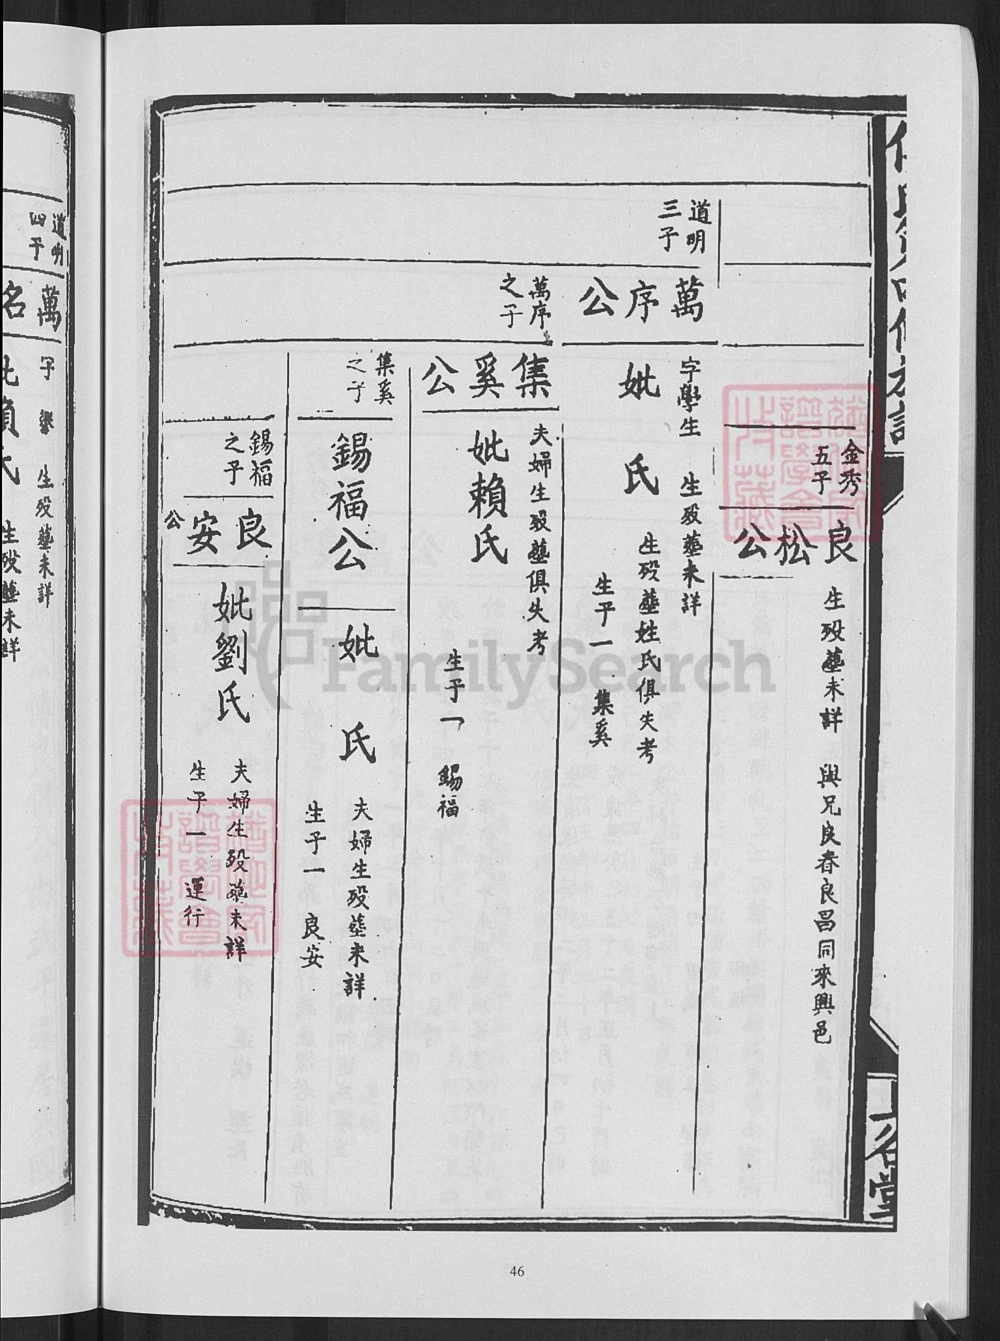 金秀
五子
良松公
生歿塟未詳 與兄良春良昌同來興邑
道明
三子
萬序公
字學生 生歿塟未詳
妣 氏 生歿塟姓氏俱失考
生子一 集奚
萬序
之子
集奚公
夫婦生歿塟俱失考
妣賴氏
生子一 錫福
集奚
之子
錫福公
妣 氏 夫婦生歿塟未詳
生子一 良安
錫福
之子
良安公
妣劉氏 夫婦生歿塟未詳
生子一 運行
道明
四子
萬名
字 生歿塟未詳
妣賴氏 生歿塟未詳
FamilySearch
46